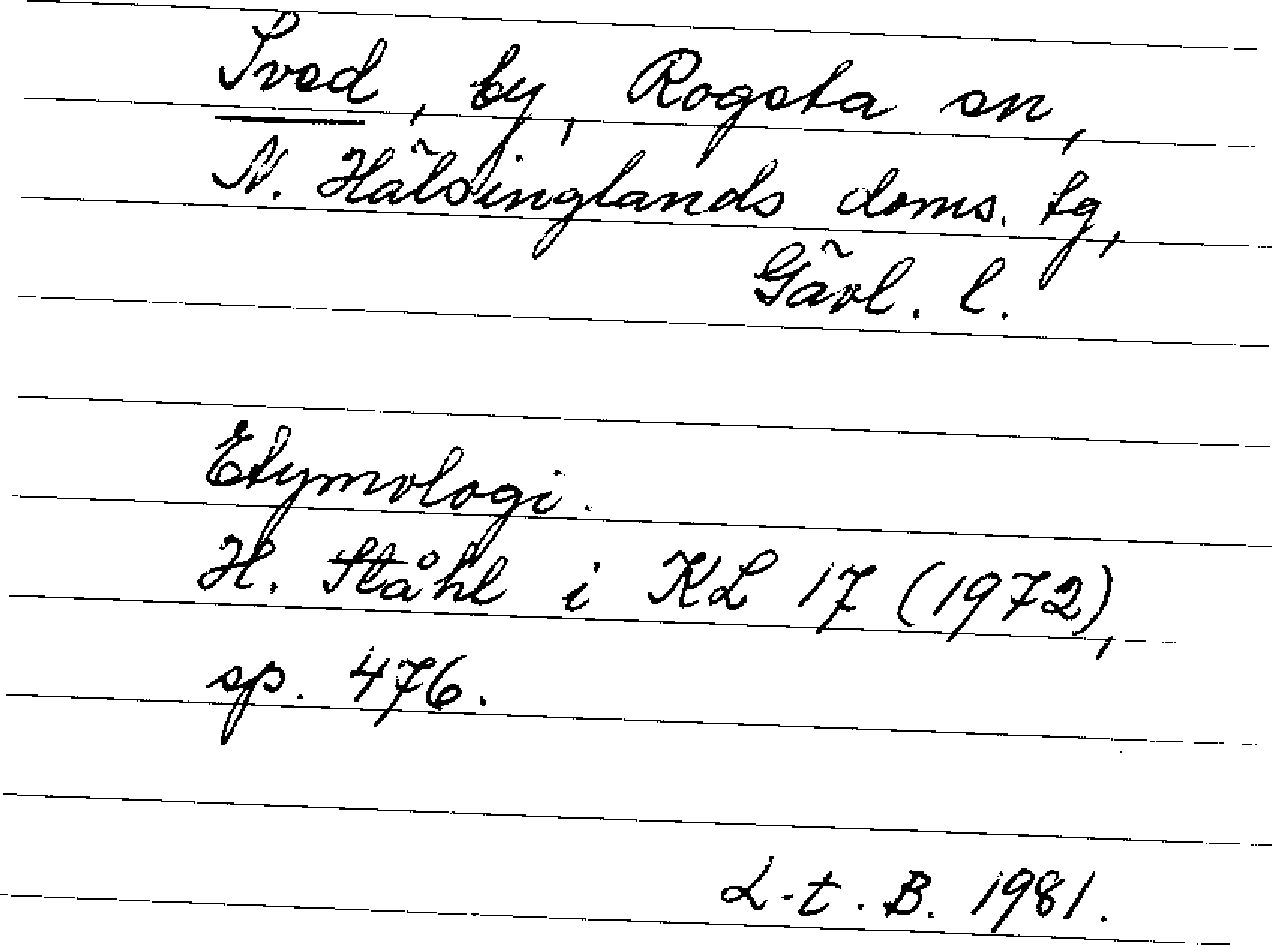 Sved, by, Rogsta sn,
N. Hälsinglands doms. tg,
Gävl. l.
Etymologi.
H. Ståhl i KL 17 (1972),
sp. 476.
L.t.B. 1981.